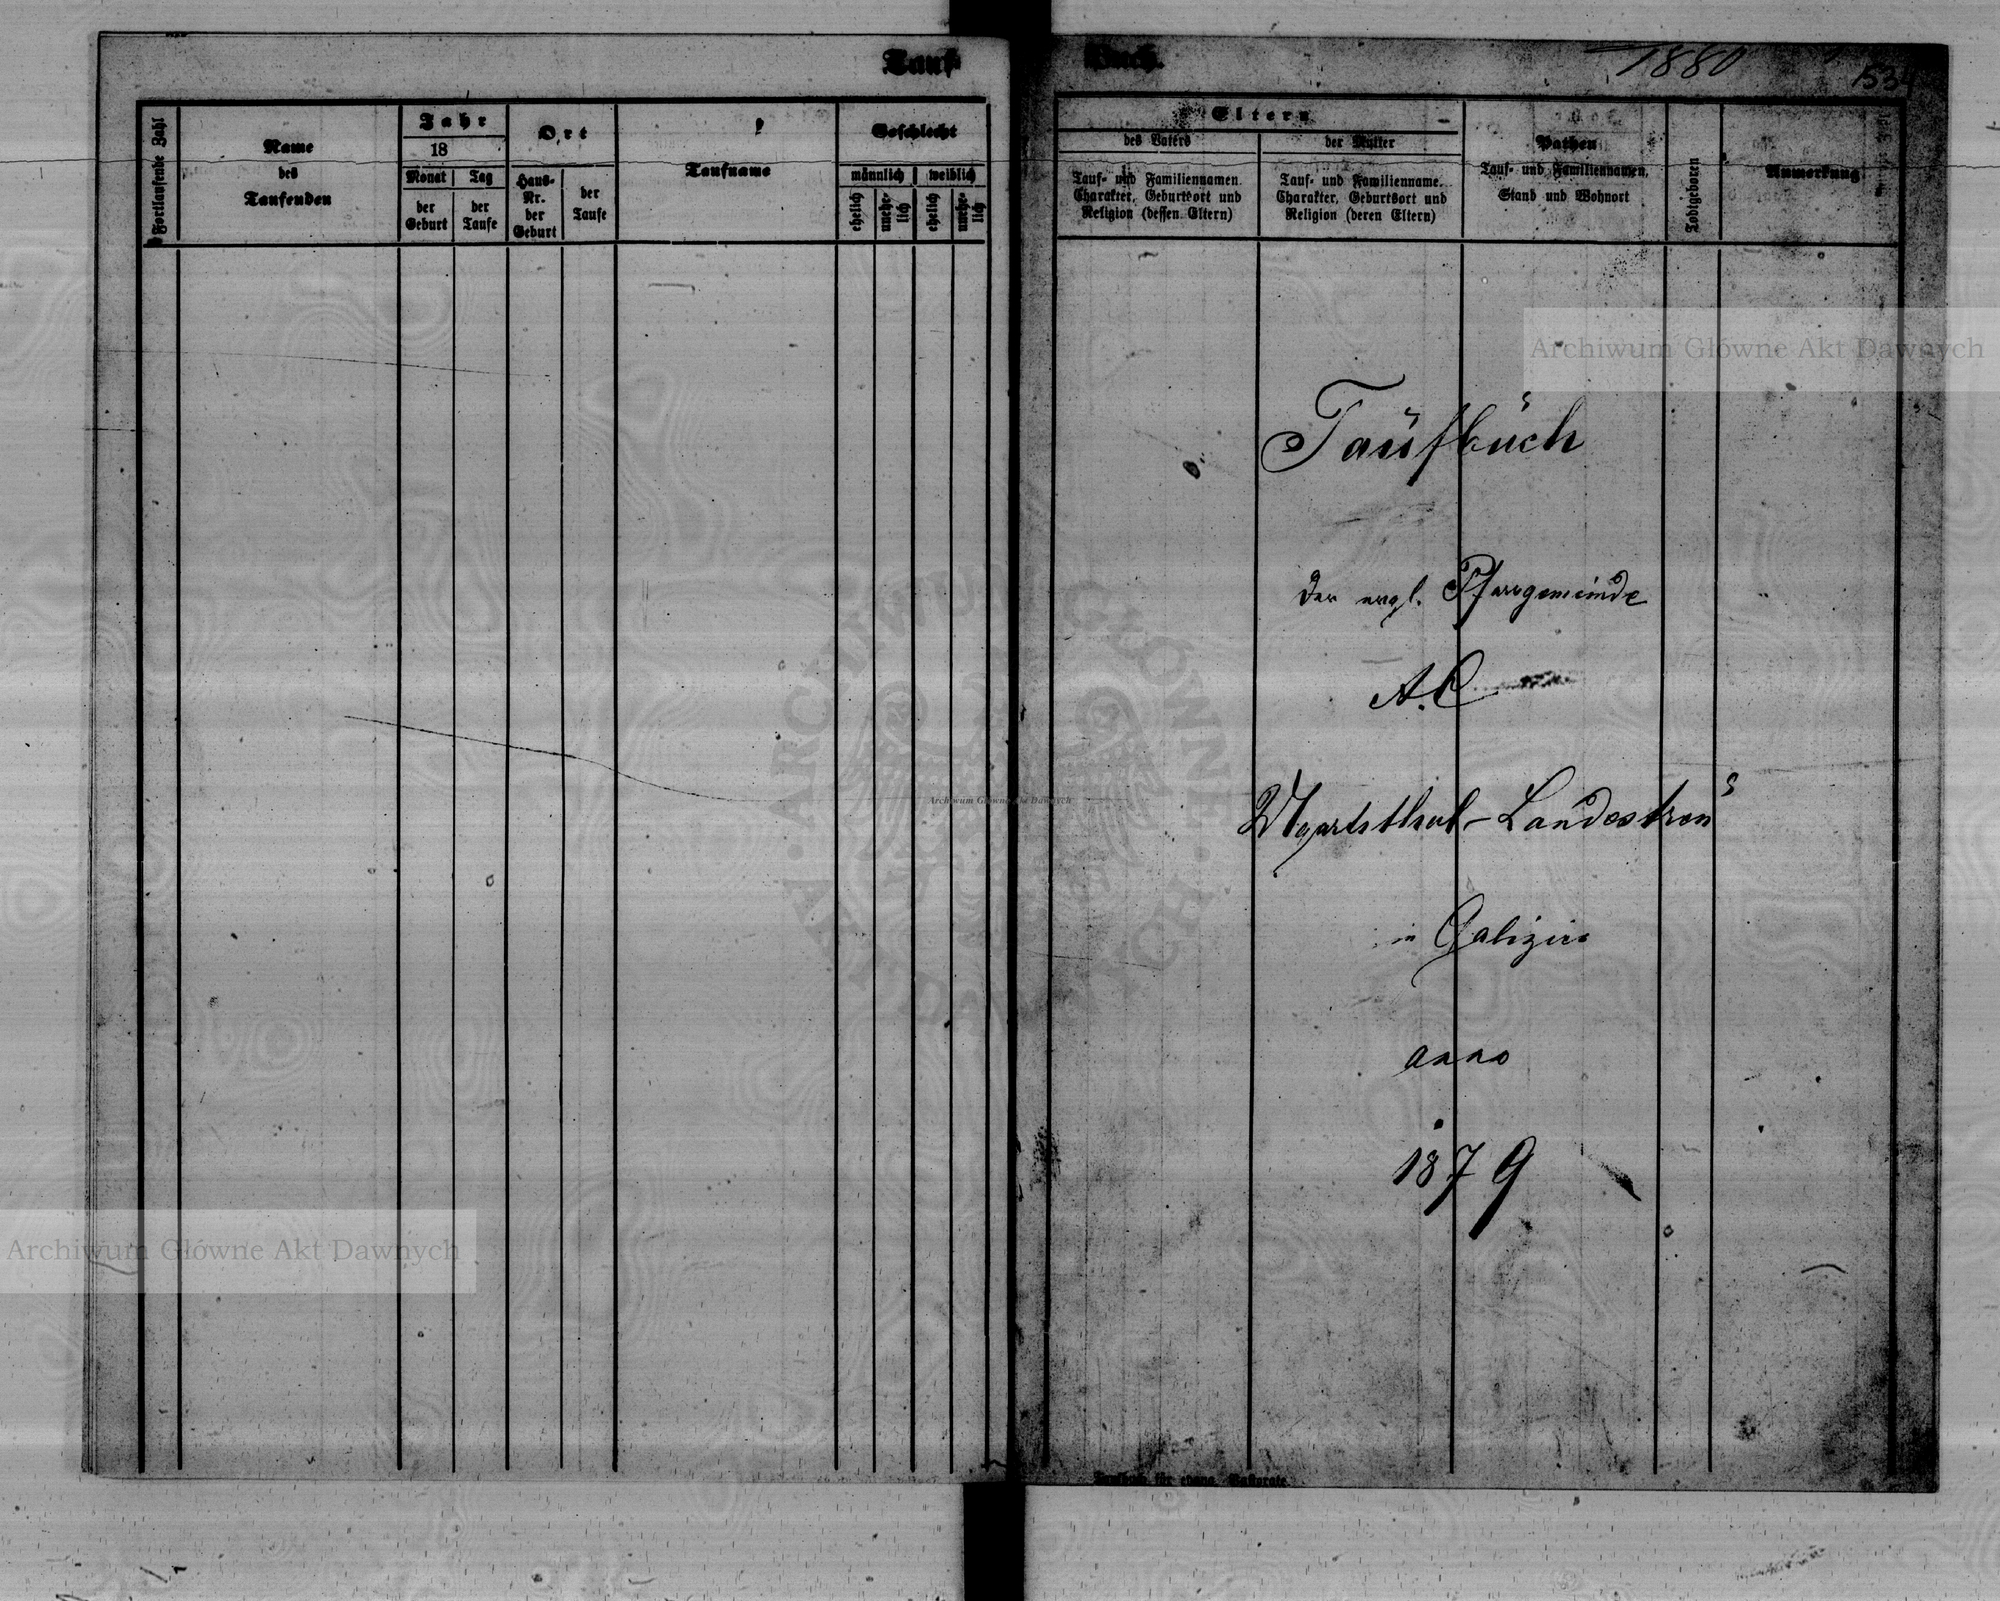 Tauf-
Buch.
1880
1534
Fortlaufende Zahl
Name
des
Taufenden
Jahr
18
Monat
der
Geburt
Tag
der
Taufe
Ort
Haus-
Nr.
der
Geburt
der
Taufe
Taufname
Geschlecht
männlich
weiblich
ehelich
unehe-
lich
ehelich
unehe-
lich
Eltern
des Vaters
der Mutter
Tauf- und Familiennamen,
Charakter, Geburtsort und
Religion (dessen Eltern)
Tauf- und Familienname,
Charakter, Geburtsort und
Religion (deren Eltern)
Pathen
Tauf- und Familiennamen,
Stand und Wohnort
Todtgeboren
Anmerkung
Taufbuch
der evgl. Pfarrgemeinde
A.C
Ugartsthal-Landestreu
in Galizien
anno
1879
Taufbuch für evang. Pastorate.
Archiwum Główne Akt Dawnych
Archiwum Główne Akt Dawnych
Archiwum Główne Akt Dawnych
ARCHIWUM GŁÓWNE
AKT DAWNYCH